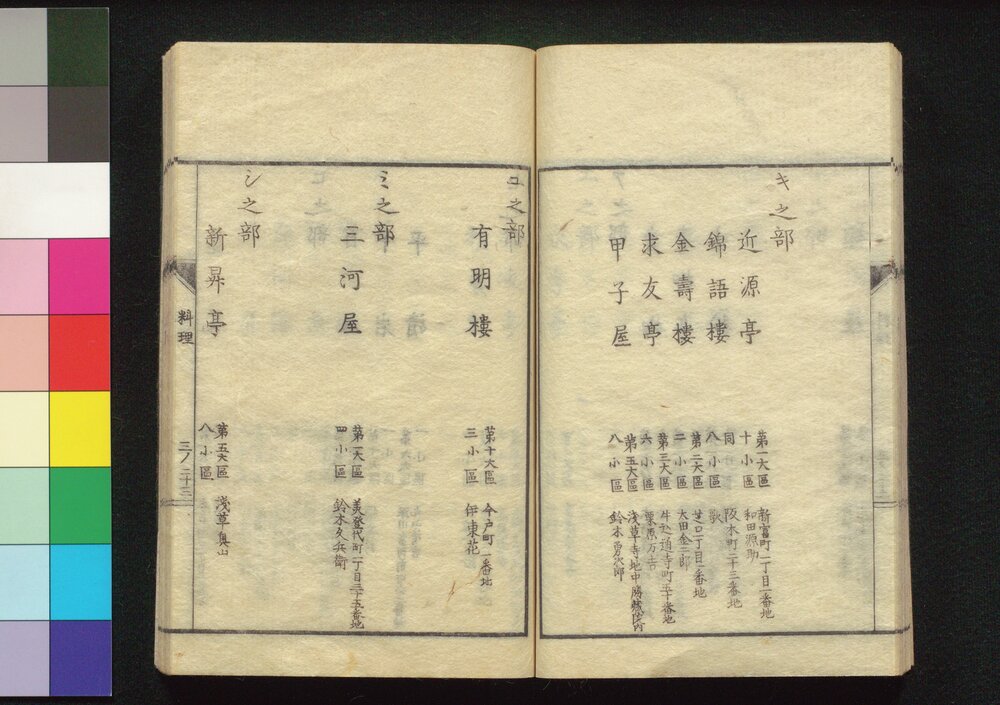 キ之部
近源亭
第一大區
十小區
新富町二丁目一番地
和田源助
錦語樓
同
八小區
阪本町二十三番地
金壽樓
第二大區
二小區
芝口一丁目一番地
太田金三郎
求友亭
第三大區
六小區
牛込通寺町五十番地
栗原万吉
甲子屋
第五大區
八小區
浅草寺地中
鈴木勇次郎
ユ之部
有明樓
第十大區
三小區
今戸町一番地
伊東花
ミ之部
三河屋
第一大區
四小區
美登代町一丁目三十五番地
鈴木久兵衛
シ之部
新昇亭
第五大區
八小區
浅草奥山
料理
三ノ二十三